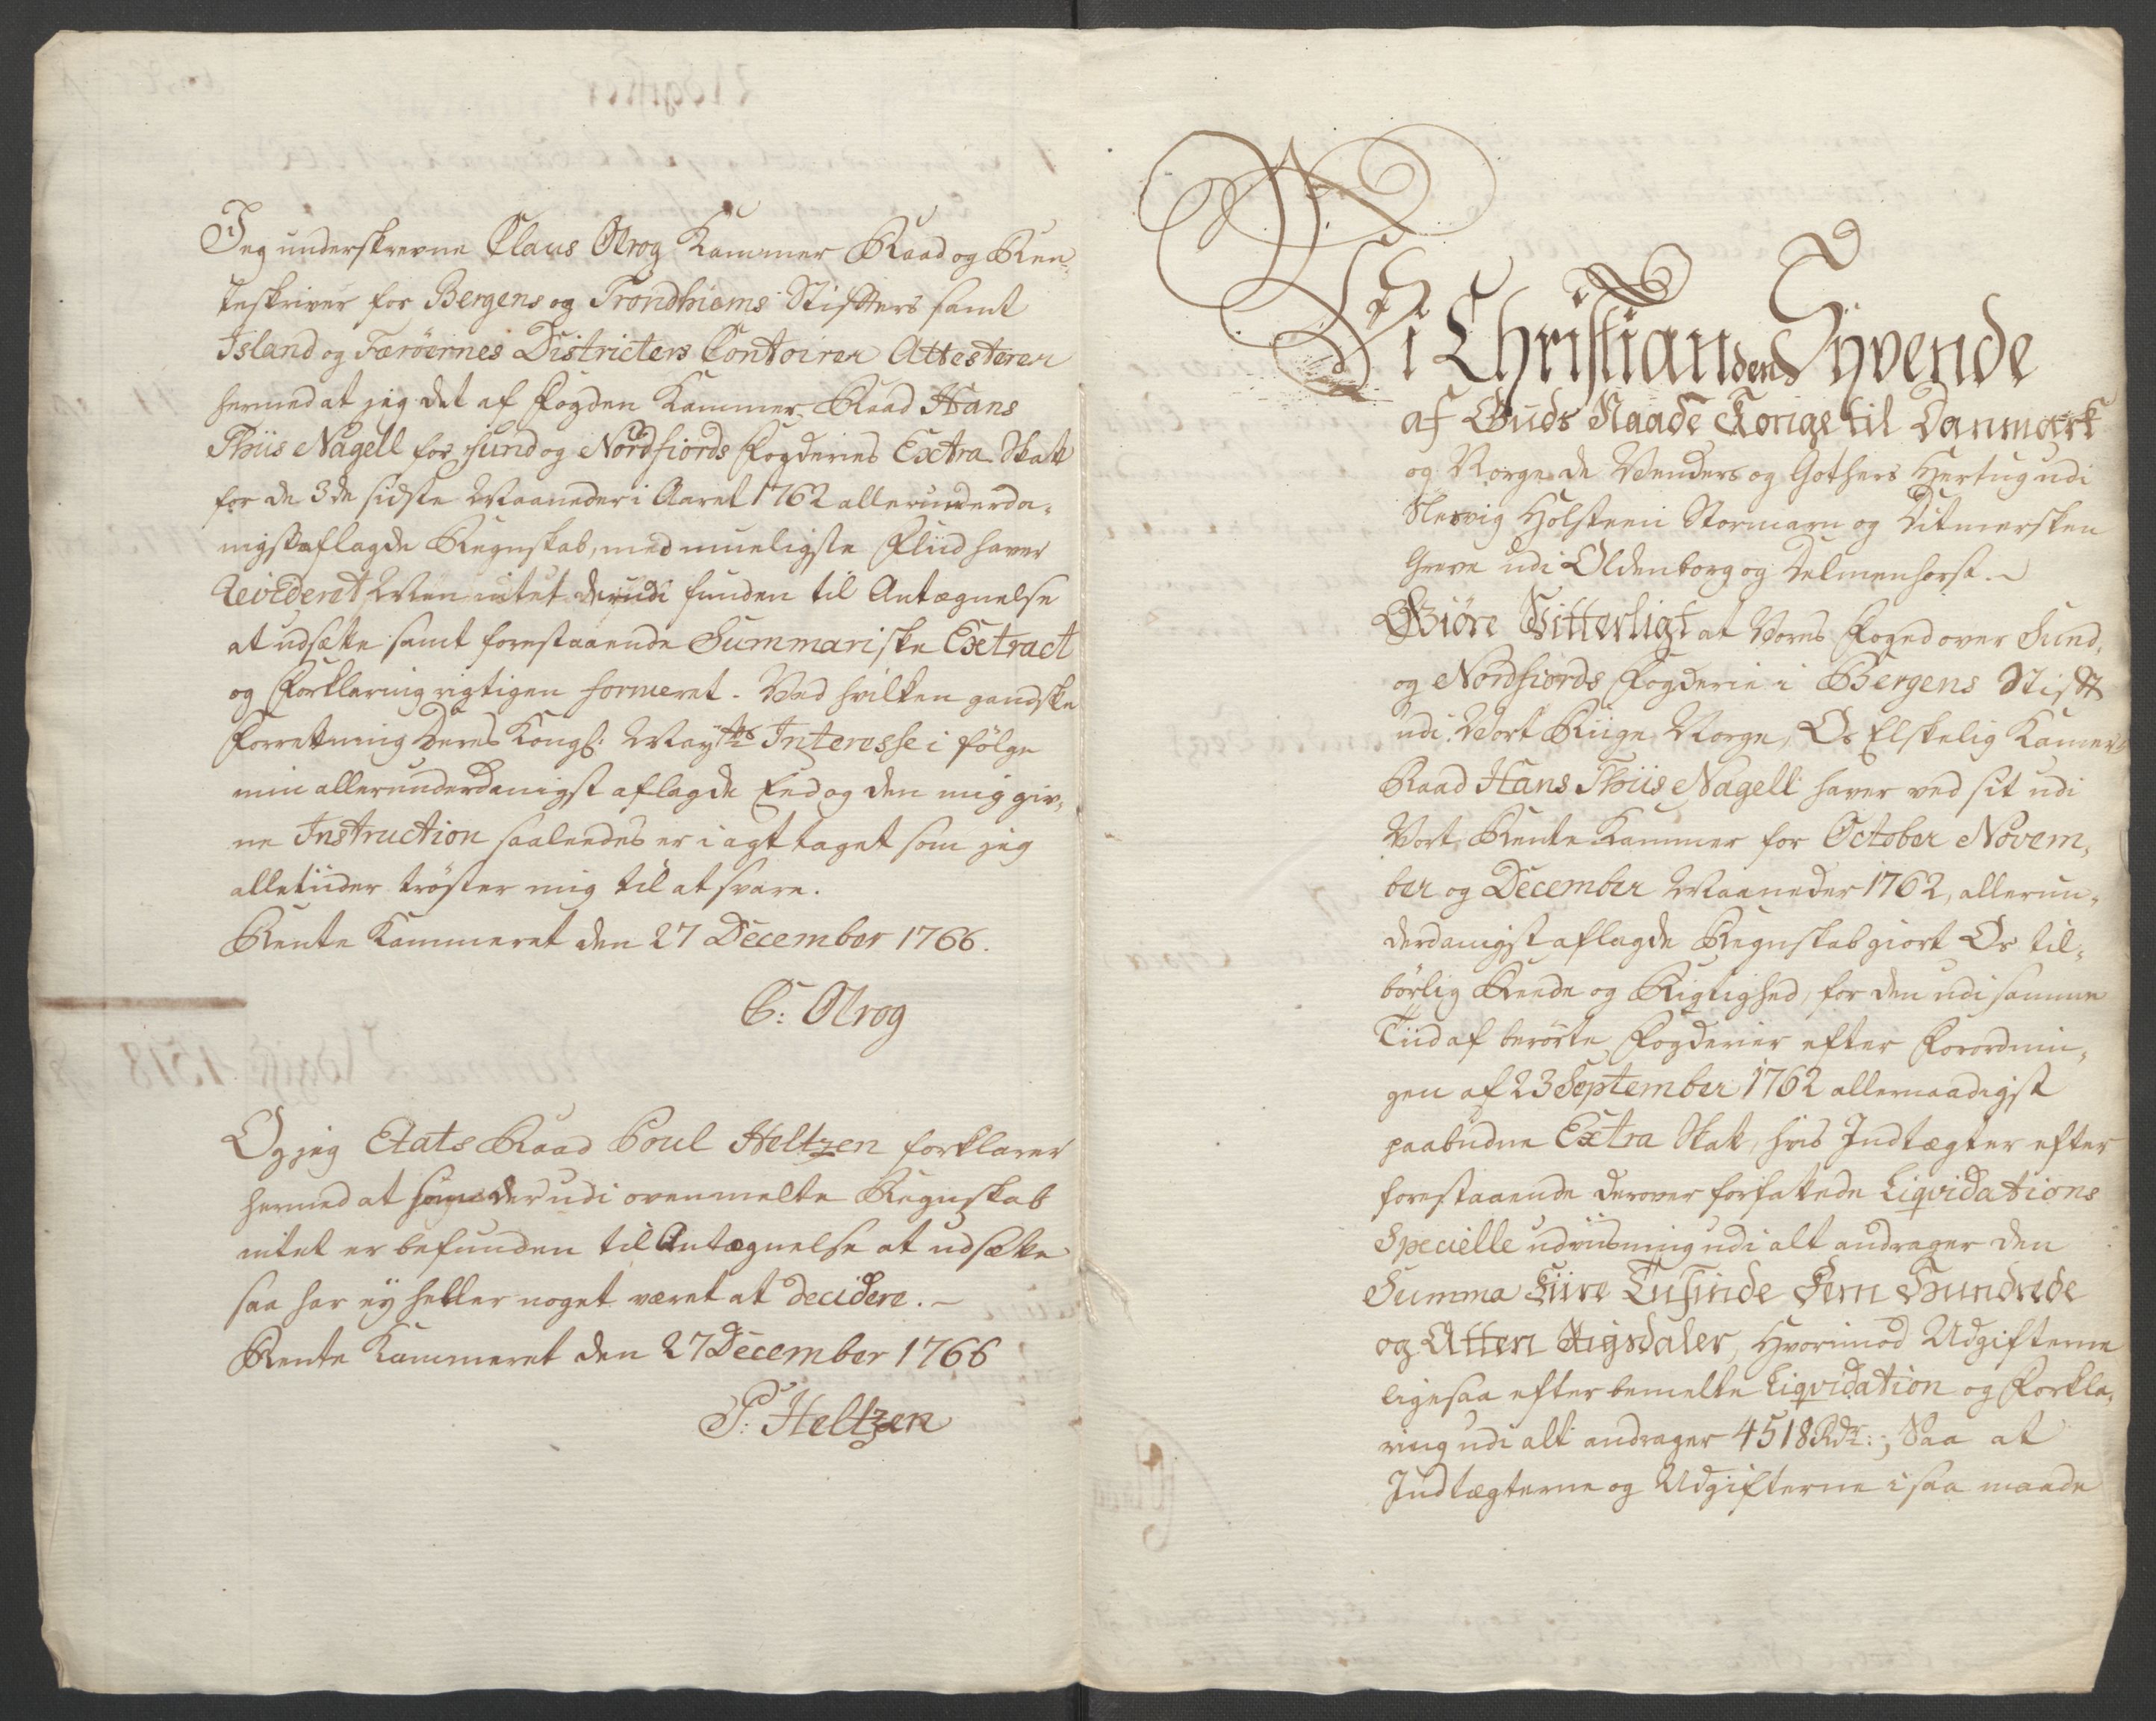 Jeg underskrevne Claus Olrog Kammer Raad og Ren-
teskriver for Bergens og Trondhiems Stifters samt
Island og Færöernes Districters Contoirer Attesterer
hermed at jeg det af Fogden Kammer-Raad Hans
Thiis Nagell for Sund og Nordfiords Fogderies Extra Skatt
for de 3de sidste Maaneder i Aaret 1762 allerunderda-
nigst aflagde Regnskab, med mueligste Fliid haver
Revideret, Men intet derudi funden til Antægnelse
at udsætte samt forestaaende Summariske Extract
og Forklaring rigtigen formeret. Ved hvilken gandske
Forretning Deres Kongl: Mayts Interesse i følge
min allerunderdanigst aflagde Eed og den mig giv-
ne Instruction saaleedes er i agt taget som jeg
alletiider tröster mig til at svare.
Rente Kammeret den 27 December 1766.
C: Olrog
Og jeg Etats Raad Poul Heltzen forklarer
hermed at som derudi ovenmelte Regnskab
intet er befunden til Antægnelse at udsætte
saa har ey heller noget været at decidere.-
Rente Kammeret den 27 December 1766
P: Heltzen
Vi Christian den Syvende
af Guds Naade Konge til Danmark
og Norge de Venders og Gothers Hertug udi
Slesvig Holsteen Stormarn og Ditmersken
Greve udi Oldenborg og Delmenhorst.-
Giöre Vitterligt at Vores Foged over Sund-
og Nordfiords Fogderie i Bergens Stift
udi Vort Riige Norge, Os Elskelig Kammer
Raad Hans Thiis Nagell haver ved sit udi
Vort Rente Kammer for October Novem-
ber og December Maaneder 1762, allerun-
derdanigst aflagde Regnskab giort Os til-
börlig Reede og Rigtighed, for den udi samme
Tiid af berörte Fogderier efter Forordnin-
gen af 23 September 1762 allernaadigst
paabudne Extra Skatt, hvis Indtægter efter
forestaaende derover forfattede Liqvidations
Specielle udviisning udi alt andrager den
Summa Fiire Tusinde Fem Hundrede
og Atten Rigsdaler, Hvorimod Udgifterne
ligesaa efter bemelte Liqvidation og Forkla-
ring udi alt andrager 4518 Rdr:; Saa at
Indtægterne og Udgifterne i saa maade